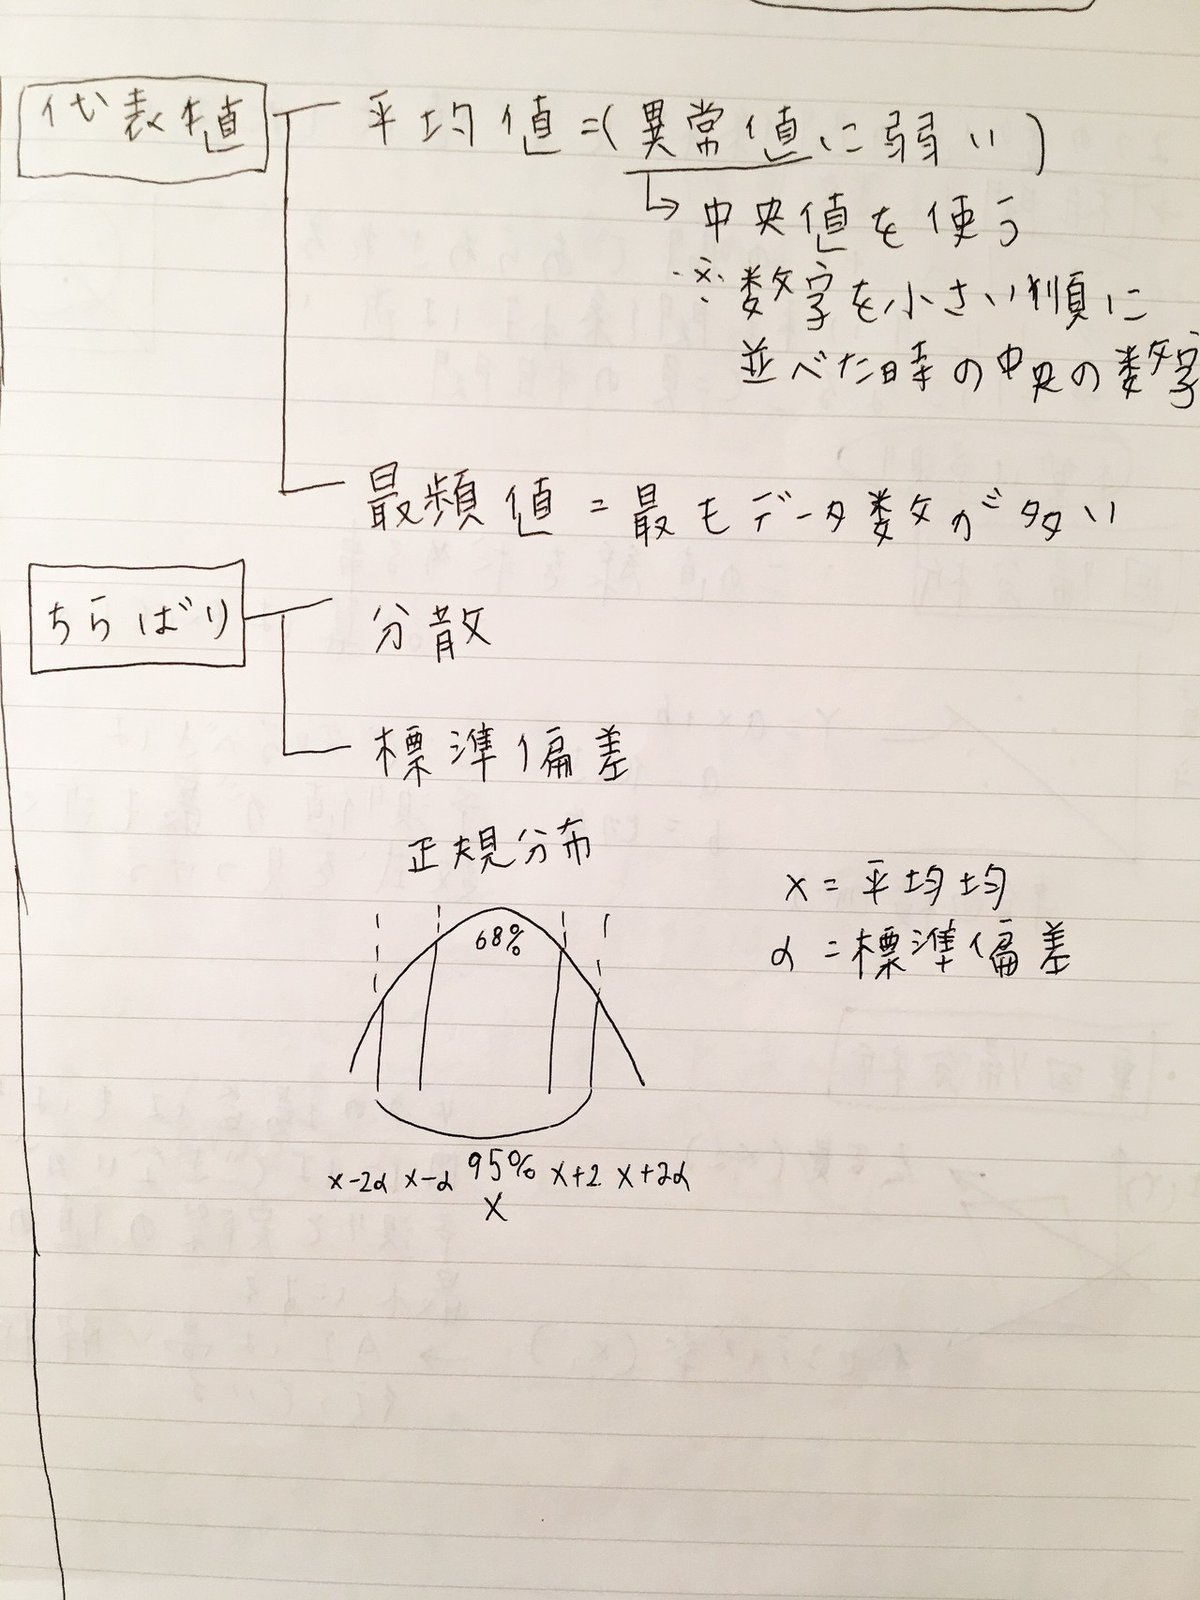 代表値
平均値=(異常値に弱い)
↳中央値を使う
※数字を小さい順に
並べた時の中央の数字
最頻値=最もデータ数が多い
ちらばり
分散
標準偏差
正規分布
68%
x=平均均
α=標準偏差
x-2α x-α 95% x+2 x+2α
x